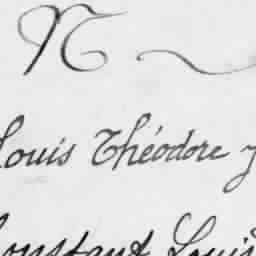 N
Louis Théodore
Constant Louis